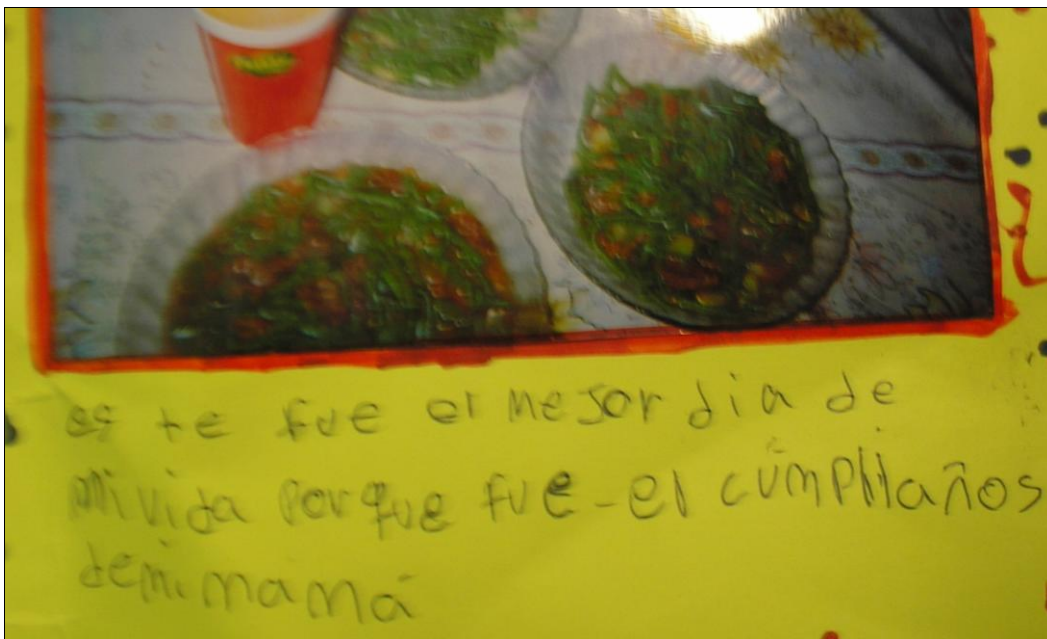 es te fue el mejor dia de
mi vida porque fue-el cúmpliaños
de mi mamá